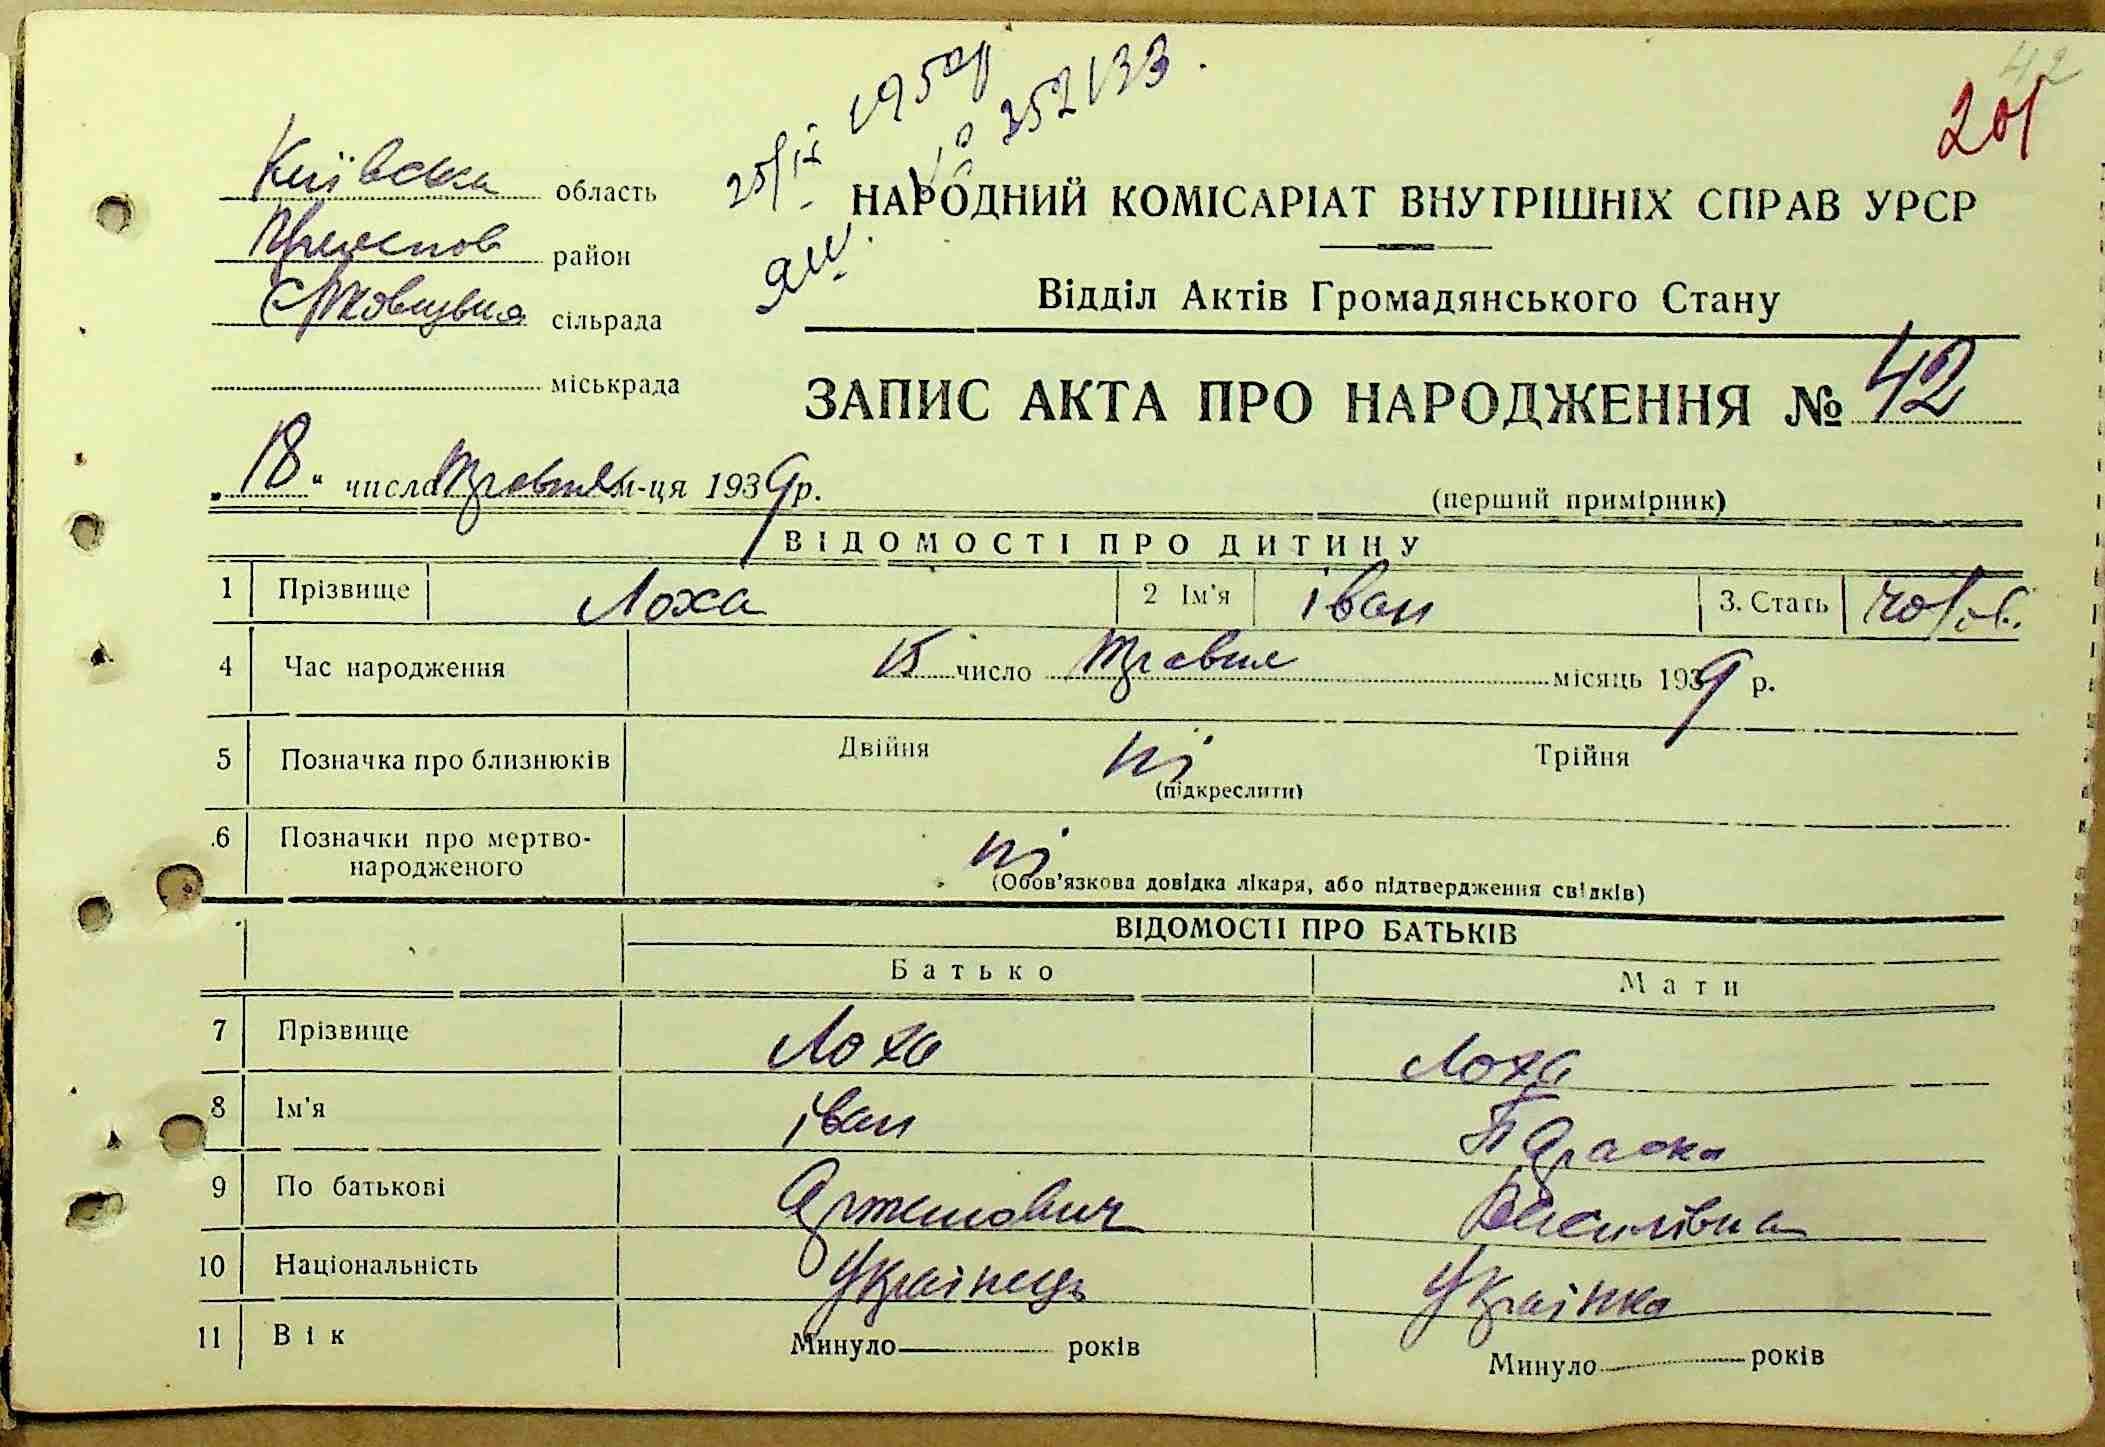 42
201
25/IX 1950р
№ 352133.
Київська область
район
сільрада
міськрада
НАРОДНИЙ КОМІСАРІАТ ВНУТРІШНІХ СПРАВ УРСР
Відділ Актів Громадянського Стану
ЗАПИС АКТА ПРО НАРОДЖЕННЯ № 42
„18“ числа травня м-ця 1939р.
(перший примірник)
ВІДОМОСТІ ПРО ДИТИНУ
1 Прізвище Лоха 2 Ім'я іван 3. Стать
4 Час народження 15 число травня місяць 1939 р.
5 Позначка про близнюків Двійня ні Трійня
(підкреслити)
6 Позначки про мертво-
народженого ні
(Обов'язкова довідка лікаря, або підтвердження свідків)
ВІДОМОСТІ ПРО БАТЬКІВ
Батько Мати
7 Прізвище Лоха Лоха
8 Ім'я іван Параска
9 По батькові Артемович Василівна
10 Національність Українець Українка
11 Вік Минуло років Минуло років